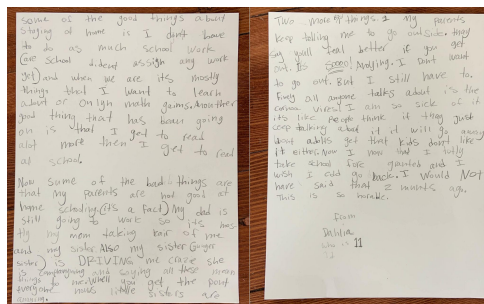 some of the good things about
staying at home is I dont have
to do as much school work
(are school dident assign any work
yet) and when we are its mostly
things that I want to learn
about or math Another
good thing that has been going
on is that I get to read
alot more then I get to read
at school.
Now some of the bad things are
that My parents are not good at
home schooling (it's a fact) My dad is
still going to work so its
my mom taking of me
and my sister Also my sister
sister) is DRIVING me craze she
is and saying all these mean
things to me. Well you get the point
everyone little sisters are
Two more things. 1 My parents
keep telling me to go outside. they
say you'll feel better if you get
out. Its Soooo! Anoying. I Dont want
to go out. But I still have to.
all anyone talks about is the
I am so sick of it
it's like people think if they just
keep talking about it it will go away
Most adults get that kids don't like
it either. Now I
take school fore and I
wish I back. I would NOT
have said that 2 ago.
This is so
from
Dahlia
11